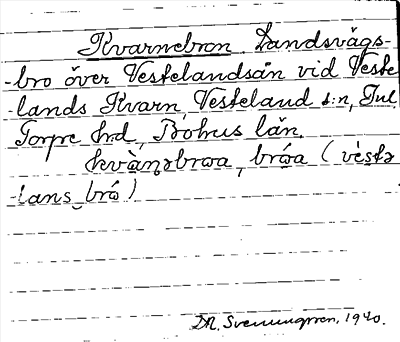 Kvarnebron. Landsvägs-
-bro över Vestelandsån vid Veste
-lands Kvarn, Vesteland s:n, Ful
Torpe hrd, Bohus län.
kvàṇəbrωa, brώa (vèstə
-lans brώ)
1940.